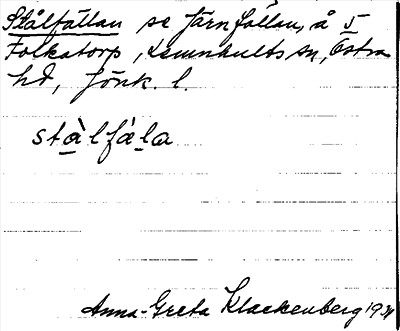 Stålfällan se Järnfällan, å 5
Folkatorp, Lemnhults sn, Östra
hd, Jönk. l.
stàlfála
Anna-Greta Klackenberg 1934